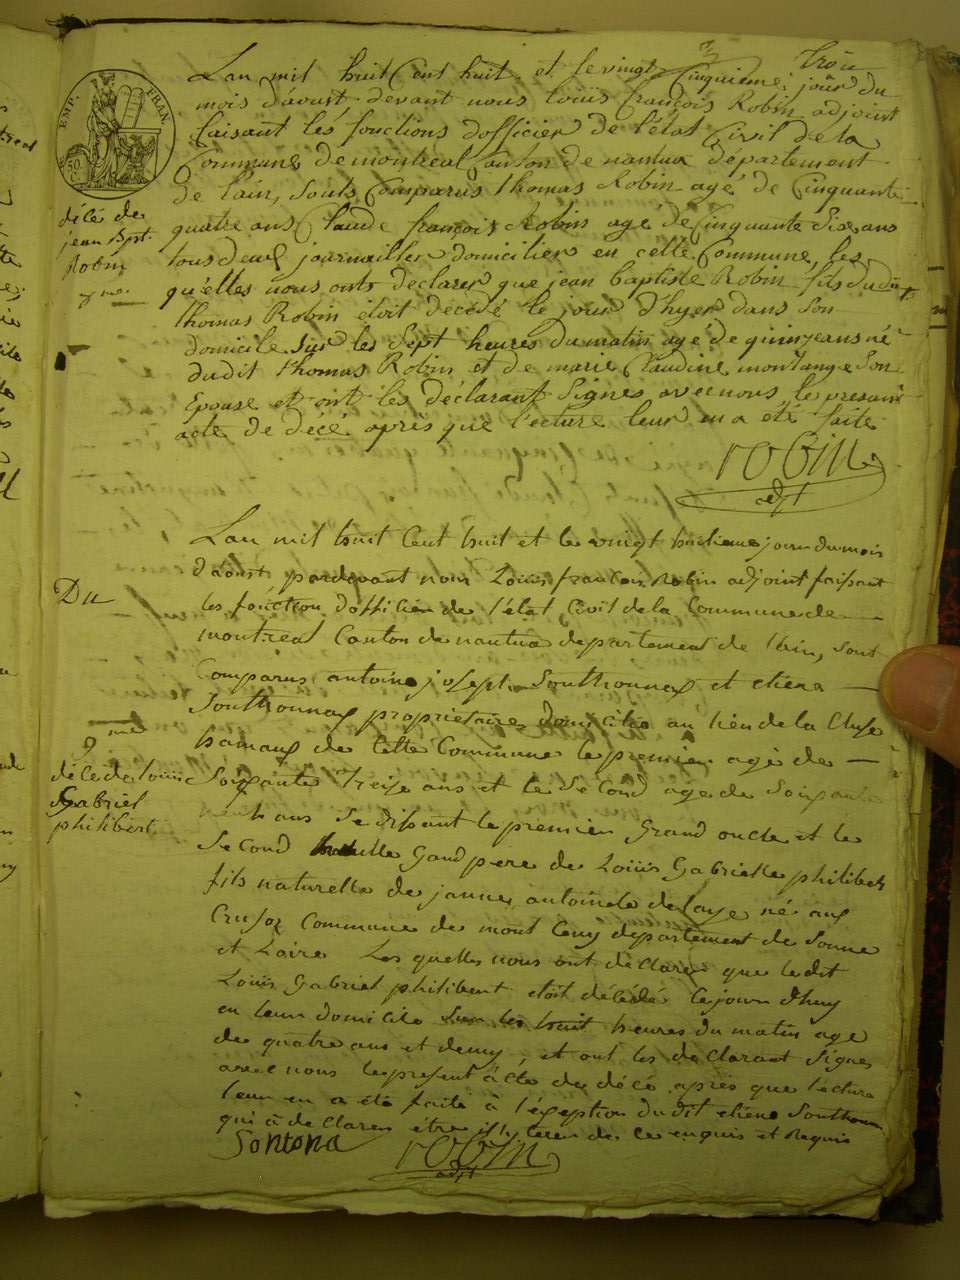 trois
Lan mil huit Cent huit et le vingt Cinquieme jour du
mois d'aoust devant nous loüis françois Robin adjoint
faisant les fonctions d'officier de l'état Civil de la
Commune de montreal Canton de nantua département
de l'ain, Sonts Comparus thomas Robin agé de Cinquante
quatre ans Claude françois Robin age de Cinquante Six ans
tous deux journaillier domicilier en cette Commune, les
qu'elles nous onts declarer que jean baptiste Robin fils dudit
thomas Robin étoit decédé le jour d'hyer dans son
domicile Sur les Sept heures du matin agé de quinze ans né
dudit thomas Robin et de marie Claudine montange Son
Epouse et ont les déclarant Signés avec nous le presant
acte de décé après que l'ecture leur en a été faite
robin
adjt
EMP. FRAN.
50
décé de
jean Bpt.
Robin
Lan mil huit Cent huit et le vingt huitieme jour du mois
d'aoust pardevant nous Loüis françois Robin adjoint faisant
les fonction d'officier de l'état Civil de la Commune de
montreal Canton de nantua departement de l'ain, sont
Comparus antoine joseph Southonnax et etiene
Southonnax propriétaires domiciliés au lieu de la Cluse
hamaux de Cette Commune le premier agé de
Soixante treize ans et le Second agé de Soixante
ans Se disant le premier Grand oncle et le
Second Gand pere de Loüis Gabrielle philibert
fils naturelle de janne antoinete delaye né aux
Crusoz Commune de mont Ceny departement de Sonne
et Loire Les quelles nous ont déclarer que ledit
Loüis Gabriel philibert étoit décédé le jour d'huy
en leur domicile Sur les huit heures du matin age
de quatre ans et demy, et ont les declarant Signes
avec nous le present acte de décé après que lecture
leur en a été faite à l'éxeption dudit etiene Southonnax
qui à declarer etre illy terer de ce enquis et Requis
Du
9 me
décé de Loüis
Gabriel
philibert
Sontona
robin
adjt